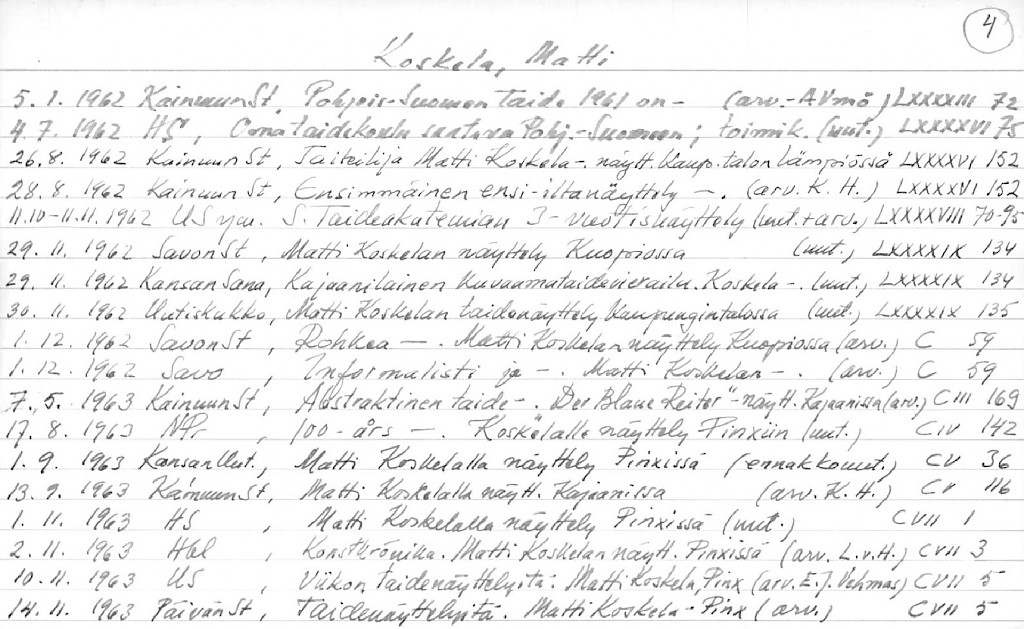 4
Koskela, Matti
5. 1. 1962 KainuunSt, Pohjois-Suomen taide 1961 on - (arv.- AVmö) LXXXXIII 72
4. 7. 1962 HS, Oma taidekoulu saatava Pohj.-Suomeen; toimik. (uut.) LXXXXVI 75
26. 8. 1962 KainuunSt, Taiteilija Matti Koskela -. näytt. Kaup. talon lämpiössä LXXXXVI 152
28. 8. 1962 KainuunSt, Ensimmäinen ensi-iltanäyttely -. (arv. K. H.) LXXXXVI 152
11.10-11.11.1962 US ym. S. Taideakatemian 3-vuotisnäyttely (uut.+arv.) LXXXXVIII 70-95
29. 11. 1962 SavonSt, Matti Koskelan näyttely Kuopiossa (uut.) LXXXXIX 134
29. 11. 1962 KansanSana, Kajaanilainen kuvaamataidevierailu. Koskela -. (uut.) LXXXXIX 134
30. 11. 1962 Uutiskukko, Matti Koskelan taidenäyttely Kaupungintalossa (uut.) LXXXXIX 135
1. 12. 1962 SavonSt, Rohkea -. Matti Koskelan näyttely Kuopiossa (arv.) C 59
1. 12. 1962 Savo, Informalisti ja -. Matti Koskelan -. (arv.) C 59
7. 5. 1963 KainuunSt, Abstraktinen taide -. "Der Blaue Reiter"-näytt. Kajaanissa (arv.) CIII 169
17. 8. 1963 NPr, 100-års -. Koskelalle näyttely Pinxiin (uut.) CIV 142
1. 9. 1963 KansanUut., Matti Koskelalla näyttely Pinxissä (ennakkouut.) CV 36
13. 9. 1963 KainuunSt, Matti Koskelalla näytt. Kajaanissa (arv. K. H.) CV 116
1. 11. 1963 HS, Matti Koskelalla näyttely Pinxissä (uut.) CVII 1
2. 11. 1963 Hbl, Konstkrönika. Matti Koskelan näytt. Pinxissä (arv. L.v.H.) CVII 3
10. 11. 1963 US, Viikon taidenäyttelyitä: Matti Koskela, Pinx (arv. E.J. Vehmas) CVII 5
14. 11. 1963 PäivänSt, Taidenäyttelyitä. Matti Koskela - Pinx (arv.) CVII 5